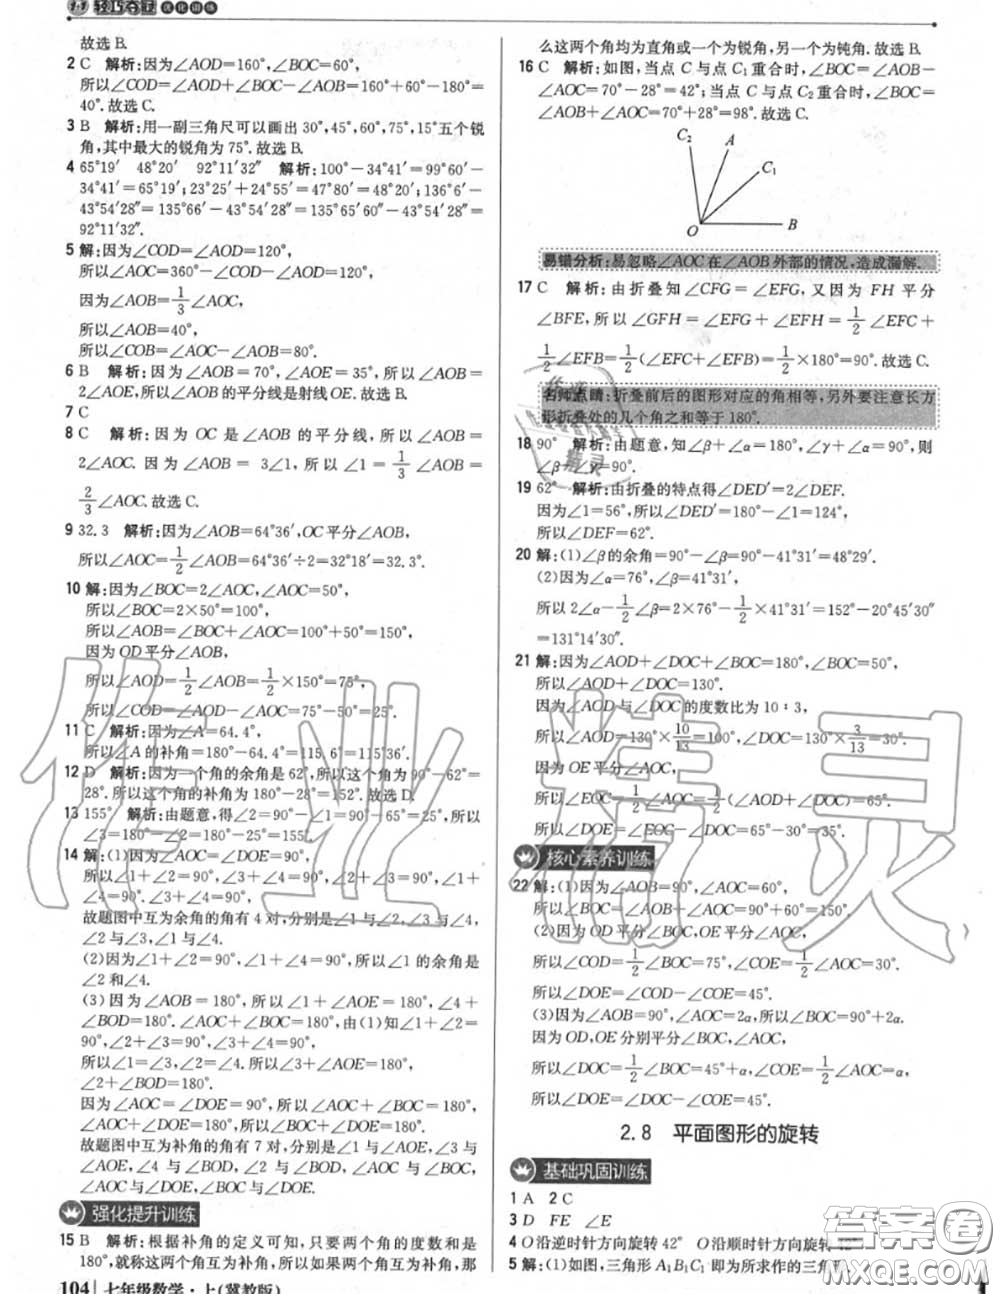 1+1 轻巧夺冠 优化训练
故选 B.
2 C 解析:因为∠AOD=160°,∠BOC=60°,
所以∠COD=∠AOD+∠BOC-∠AOB=160°+60°-180°=
40°.故选 C.
3 B 解析:用一副三角尺可以画出 30°,45°,60°,75°,15°五个锐
角,其中最大的锐角为 75°.故选 B.
4 65°19′ 48°20′ 92°11′32″ 解析:100°-34°41′=99°60′-
34°41′=65°19′;23°25′+24°55′=47°80′=48°20′;136°6′-
43°54′28″=135°66′-43°54′28″=135°65′60″-43°54′28″=
92°11′32″.
5 解:因为∠COD=∠AOD=120°,
所以∠AOC=360°-∠COD-∠AOD=120°,
因为∠AOB=1/3∠AOC,
所以∠AOB=40°,
所以∠BOC=∠AOC-∠AOB=80°.
6 B 解析:因为∠AOB=70°,∠AOE=35°,所以∠AOB=
2∠AOE,所以∠AOB的平分线是射线OE.故选 B.
7 C
8 C 解析:因为 OC 是∠AOB 的平分线,所以∠AOB=
2∠AOC.因为∠AOB=3∠1,所以∠1=1/3∠AOB=
2/3∠AOC.故选 C.
9 32.3 解析:因为∠AOB=64°36′,OC平分∠AOB,
所以∠AOC=1/2∠AOB=64°36′÷2=32°18′=32.3°.
10 解:因为∠BOC=2∠AOC,∠AOC=50°,
所以∠BOC=2×50°=100°,
所以∠AOB=∠BOC+∠AOC=100°+50°=150°.
因为 OD 平分∠AOB,
所以∠AOD=1/2∠AOB=1/2×150°=75°,
所以∠COD=∠AOD-∠AOC=75°-50°=25°.
11 C 解析:因为∠A=64.4°,
所以∠A的补角=180°-64.4°=115.6°=115°36′.
12 D 解析:因为一个角的余角是 62°,所以这个角为 90°-62°=
28°.所以这个角的补角为 180°-28°=152°.故选 D.
13 155° 解析:由题意,得∠2=90°-∠1=90°-65°=25°,所以
∠3=180°-∠2=180°-25°=155°.
14 解:(1)因为∠AOC=∠DOE=90°,
所以∠1+∠2=90°,∠3+∠4=90°.因为∠1=∠3,所以∠1+
∠4=90°,∠2+∠3=90°,
故题图中互为余角的角有 4 对,分别是∠1与∠2,∠3与∠4,
∠2与∠3,∠1与∠4.
(2)因为∠1+∠2=90°,∠1+∠4=90°,所以∠1的余角是
∠2和∠4.
(3)因为∠AOB=180°,所以∠1+∠AOE=180°,∠4+
∠BOD=180°.∠AOC+∠BOC=180°,由(1)知∠1+∠2=
90°,∠DOE=90°,∠3+∠4=90°.
所以∠1=∠3,∠2=∠4.所以∠3+∠AOE=180°,
∠2+∠BOD=180°.
因为∠AOC=∠DOE=90°,所以∠AOC+∠BOC=180°,
所以∠DOE+∠BOC=180°,∠AOC+∠DOE=180°,
故题图中互为补角的角有 7 对,分别是∠1与∠AOE,∠4与
∠BOD,∠AOC与∠BOC,∠3与∠AOE,∠2与∠BOD,
∠DOE与∠BOC,∠AOC与∠DOE.
强化提升训练
15 B 解析:根据补角的定义可知,只要两个角的度数和是
180°,就称这两个角互为补角,所以如果两个角互为补角,那
104 七年级数学·上(冀教版)
么这两个角均为直角或一个为锐角,另一个为钝角.故选 B.
16 C 解析:如图,当点 C 与点 C₁ 重合时,∠BOC=∠AOB-
∠AOC=70°-28°=42°;当点 C 与点 C₂ 重合时,∠BOC=
∠AOB+∠AOC=70°+28°=98°.故选 C.
C₂
A
C₁
O
B
易错分析:易忽略∠AOC在∠AOB外部的情况,造成漏解.
17 C 解析:由折叠知∠CFG=∠EFG,又因为 FH 平分
∠BFE,所以∠GFH=∠EFG+∠EFH=1/2∠EFC+
1/2∠EFB=1/2(∠EFC+∠EFB)=1/2×180°=90°.故选 C.
名师点睛:折叠前后的图形对应的角相等,另外要注意长方
形折叠处的几个角之和等于 180°.
18 90° 解析:由题意,知∠β+∠α=180°,∠γ+∠α=90°,则
∠β-∠γ=90°.
19 62° 解析:由折叠的特点得∠DED′=2∠DEF.
因为∠1=56°,所以∠DED′=180°-∠1=124°,
所以∠DEF=62°.
20 解:(1)∠β的余角=90°-∠β=90°-41°31′=48°29′.
(2)因为∠α=76°,∠β=41°31′,
所以 2∠α-1/2∠β=2×76°-1/2×41°31′=152°-20°45′30″
=131°14′30″.
21 解:因为∠AOD+∠DOC+∠BOC=180°,∠BOC=50°,
所以∠AOD+∠DOC=130°.
因为∠AOD与∠DOC的度数比为 10:3,
所以∠AOD=130°×10/13=100°,∠DOC=130°×3/13=30°.
因为 OE平分∠AOC,
所以∠EOC=1/2∠AOC=1/2(∠AOD+∠DOC)=65°.
所以∠DOE=∠EOC-∠DOC=65°-30°=35°.
核心素养训练
22 解:(1)因为∠AOB=90°,∠AOC=60°,
所以∠BOC=∠AOB+∠AOC=90°+60°=150°.
(2)因为 OD平分∠BOC,OE平分∠AOC,
所以∠COD=1/2∠BOC=75°,∠COE=1/2∠AOC=30°.
所以∠DOE=∠COD-∠COE=45°.
(3)因为∠AOB=90°,∠AOC=2α,所以∠BOC=90°+2α.
因为 OD,OE 分别平分∠BOC,∠AOC,
所以∠DOC=1/2∠BOC=45°+α,∠COE=1/2∠AOC=α,
所以∠DOE=∠DOC-∠COE=45°.
2.8 平面图形的旋转
基础巩固训练
1 A 2 C
3 D FE ∠E
4 O 沿逆时针方向旋转 42° O 沿顺时针方向旋转 42°
5 解:(1)如图,三角形 A₁B₁C₁ 即为所求作的三角形.
作业精灵
答案圈
MXQE.COM